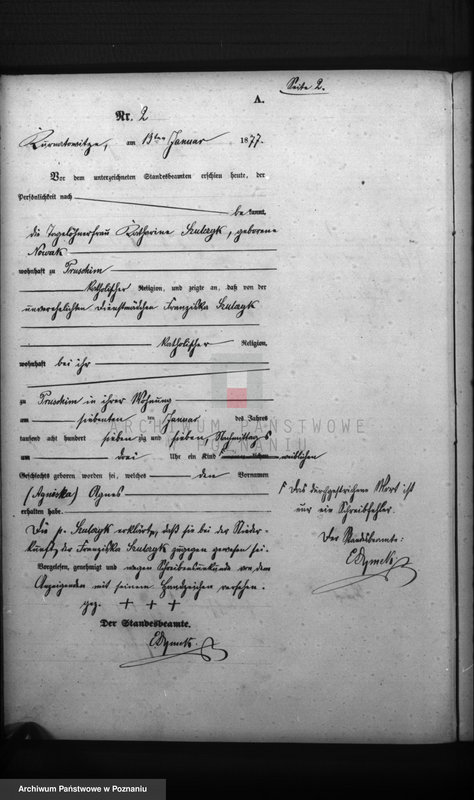 Seite 2.
A.
Nr. 2
am 13ten Januar 1877.
Vor dem unterzeichneten Standesbeamten erschien heute, der
Persönlichkeit nach
be kannt,
die Tagelöhnerfrau Katharina Szulczyk, geborene
Nowak
wohnhaft zu Pruschim
katholischer Religion, und zeigte an, daß von der
unverehelichten Dienstmädchen Franziska Szulczyk
katholischer Religion,
wohnhaft bei ihr
zu Pruschim in ihrer Wohnung
am siebenten ten Januar des Jahres
tausend acht hundert sieben zig und sieben, Nachmittags
um drei Uhr ein Kind weiblichen
Geschlechts geboren worden sei, welches den Vornamen
(Agnieska) Agnes
erhalten habe.
Die p. Szulczyk erklärte, daß sie bei der Nieder-
kunft der Franziska Szulczyk zugegen gewesen sei.
Vorgelesen, genehmigt und wegen Schreibensunkunde von dem
Anzeigenden mit seinem Handzeichen versehen.
gez. + + +
Der Standesbeamte.
Das durchgestrichene Wort ist
nur ein Schreibfehler.
Der Standesbeamte:
ARCHIWUM PAŃSTWOWE
W POZNANIU
Archiwum Państwowe w Poznaniu